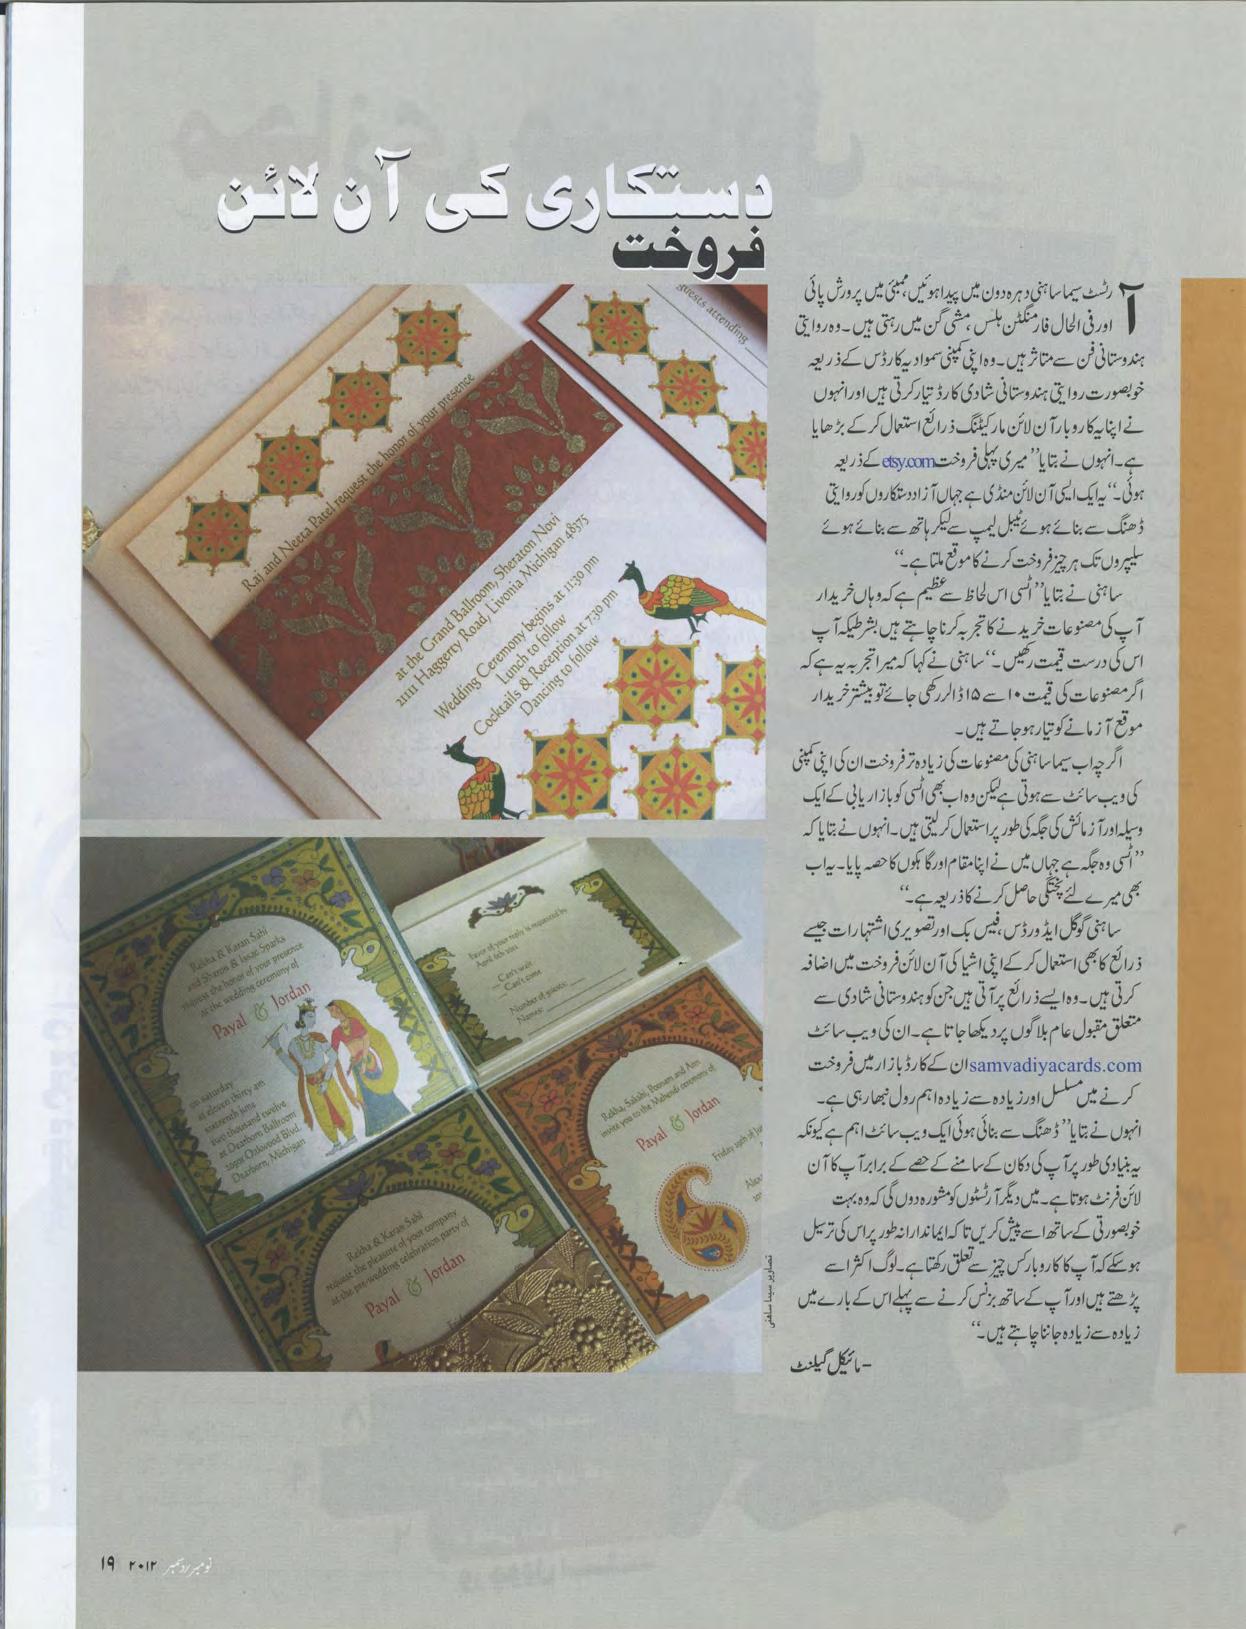 دستکاری کی آن لائن
فروخت
آرٹسٹ سیما ساہنی دہرہ دون میں پیدا ہوئیں، ممبئی میں پرورش پائی
اور فی الحال فارمنگٹن ہلس، مشی گن میں رہتی ہیں۔ وہ روایتی
ہندوستانی فن سے متاثر ہیں۔ وہ اپنی کمپنی سموادیہ کارڈس کے ذریعہ
خوبصورت روایتی ہندوستانی شادی کارڈ تیار کرتی ہیں اور انہوں
نے اپنا یہ کاروبار آن لائن مارکیٹنگ ذرائع استعمال کر کے بڑھایا
ہے۔ انہوں نے بتایا ’’میری پہلی فروخت etsy.com کے ذریعہ
ہوئی۔‘‘ یہ ایک ایسی آن لائن منڈی ہے جہاں آزاد دستکاروں کو روایتی
ڈھنگ سے بنائے ہوئے ٹیبل لیمپ سے لیکر ہاتھ سے بنائے ہوئے
سلیپروں تک ہر چیز فروخت کرنے کا موقع ملتا ہے۔‘‘
ساہنی نے بتایا ’’اٹسی اس لحاظ سے عظیم ہے کہ وہاں خریدار
آپ کی مصنوعات خریدنے کا تجربہ کرنا چاہتے ہیں بشرطیکہ آپ
اس کی درست قیمت رکھیں۔‘‘ ساہنی نے کہا کہ میرا تجربہ یہ ہے کہ
اگر مصنوعات کی قیمت ۱۰ سے ۱۵ ڈالر رکھی جائے تو بیشتر خریدار
موقع آزمانے کو تیار ہو جاتے ہیں۔
اگرچہ اب سیما ساہنی کی مصنوعات کی زیادہ تر فروخت ان کی اپنی کمپنی
کی ویب سائٹ سے ہوتی ہے لیکن وہ اب بھی اٹسی کو بازار یابی کے ایک
وسیلہ اور آزمائش کی جگہ کی طور پر استعمال کر لیتی ہیں۔ انہوں نے بتایا کہ
’’اٹسی وہ جگہ ہے جہاں میں نے اپنا مقام اور گاہکوں کا حصہ پایا۔ یہ اب
بھی میرے لئے پختگی حاصل کرنے کا ذریعہ ہے۔‘‘
ساہنی گوگل ایڈورڈس، فیس بک اور تصویری اشتہارات جیسے
ذرائع کا بھی استعمال کر کے اپنی اشیا کی آن لائن فروخت میں اضافہ
کرتی ہیں۔ وہ ایسے ذرائع پر آتی ہیں جن کو ہندوستانی شادی سے
متعلق مقبول عام بلاگوں پر دیکھا جاتا ہے۔ ان کی ویب سائٹ
samvadiyacards.com ان کے کارڈ بازار میں فروخت
کرنے میں مسلسل اور زیادہ سے زیادہ اہم رول نبھا رہی ہے۔
انہوں نے بتایا ’’ڈھنگ سے بنائی ہوئی ایک ویب سائٹ اہم ہے کیونکہ
یہ بنیادی طور پر آپ کی دکان کے سامنے کے حصے کے برابر آپ کا آن
لائن فرنٹ ہوتا ہے۔ میں دیگر آرٹسٹوں کو مشورہ دوں گی کہ وہ بہت
خوبصورتی کے ساتھ اسے پیش کریں تاکہ ایماندارانہ طور پر اس کی ترسیل
ہو سکے کہ آپ کا کاروبار کس چیز سے تعلق رکھتا ہے۔ لوگ اکثر اسے
پڑھتے ہیں اور آپ کے ساتھ بزنس کرنے سے پہلے اس کے بارے میں
زیادہ سے زیادہ جاننا چاہتے ہیں۔‘‘
-مائیکل گیلنٹ
guests attending
Raj and Neeta Patel request the honor of your presence
at the Grand Ballroom, Sheraton Novi
21111 Haggerty Road, Livonia Michigan 48375
Wedding Ceremony begins at 11:30 pm
Lunch to follow
Cocktails & Reception at 7:30 pm
Dancing to follow
Rekha & Karan Sahi
and Sharon & Issac Sparks
request the honor of your presence
at the wedding ceremony of
Payal & Jordan
on saturday
at eleven thirty am
sixteenth june
two thousand twelve
at Dearborn Ballroom
Oakwood Blvd.
Dearborn, Michigan
Favor of your reply is requested by
April 6th 2012
Can't wait
Can't come
Number of guests:
Names:
Rekha, Sakshi, Poonam and Ann
invite you to the Mehendi ceremony of
Payal & Jordan
Rekha & Karan Sahi
request the pleasure of your company
at the pre-wedding celebration party of
Payal & Jordan
تصاویر سیما ساہنی
نومبر/دسمبر ۲۰۱۲ ۱۹